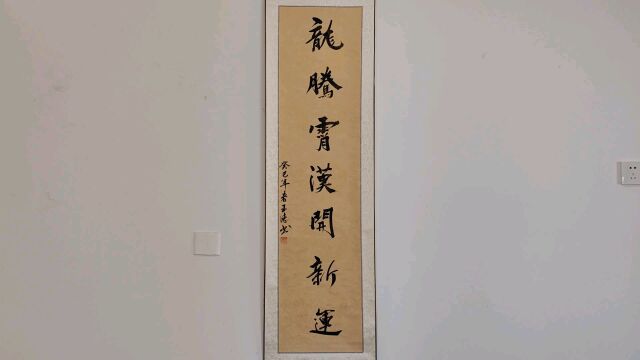 龍騰霄漢開新運
癸巳年春